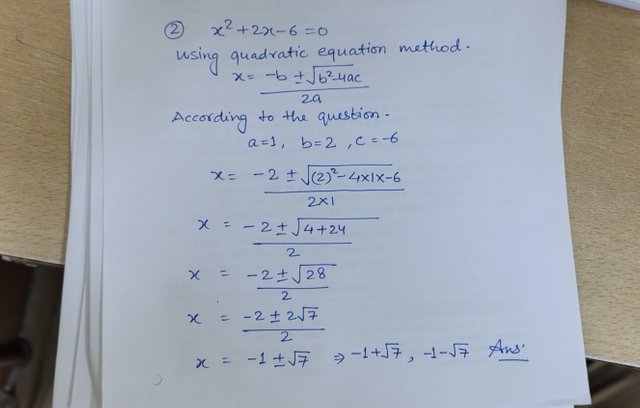 ② x²+2x-6=0
using quadratic equation method.
x= -b ±√b²-4ac
2a
According to the question.
a=1, b=2, c=-6
x= -2 ± √(2)²-4x1x-6
2x1
x = -2 ± √4+24
2
x = -2 ± √28
2
x = -2 ± 2√7
2
x = -1 ± √7 ⇒ -1+√7, -1-√7 Ans.